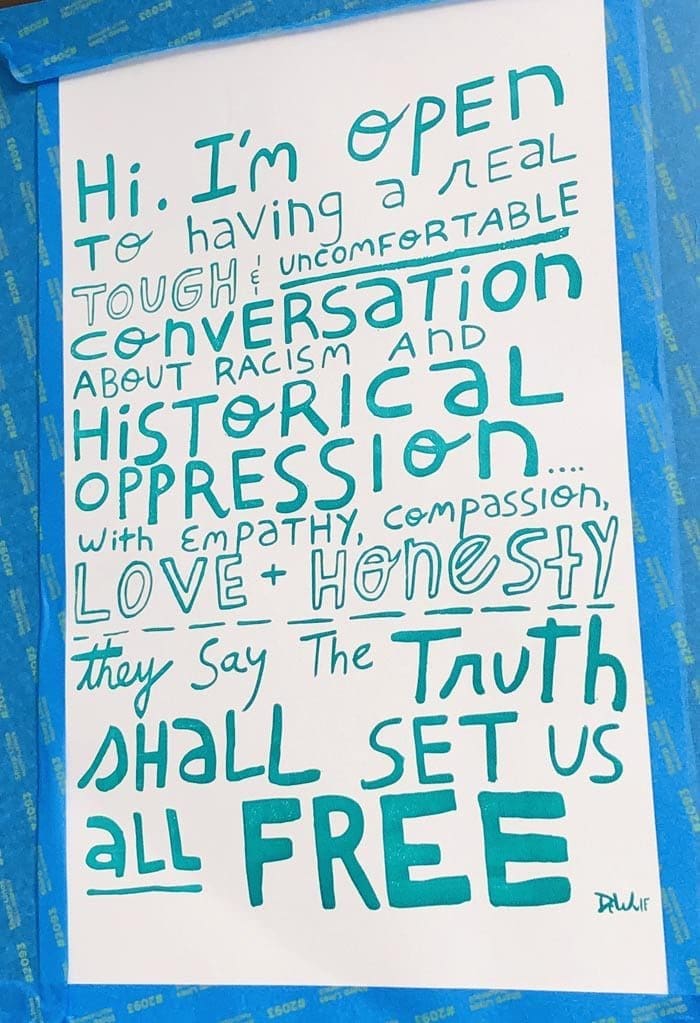 Hi. I'm OPEn
To having a rEaL
TOUGH & UncOMFORTABLE
COnVERSaTiOn
ABOUT RACISm AnD
HiSTORICaL
OPPRESSIOn....
With EmPaTHY, COmPassION,
LOVE + HOnesty
they Say The Truth
SHaLL SET US
aLL FREE